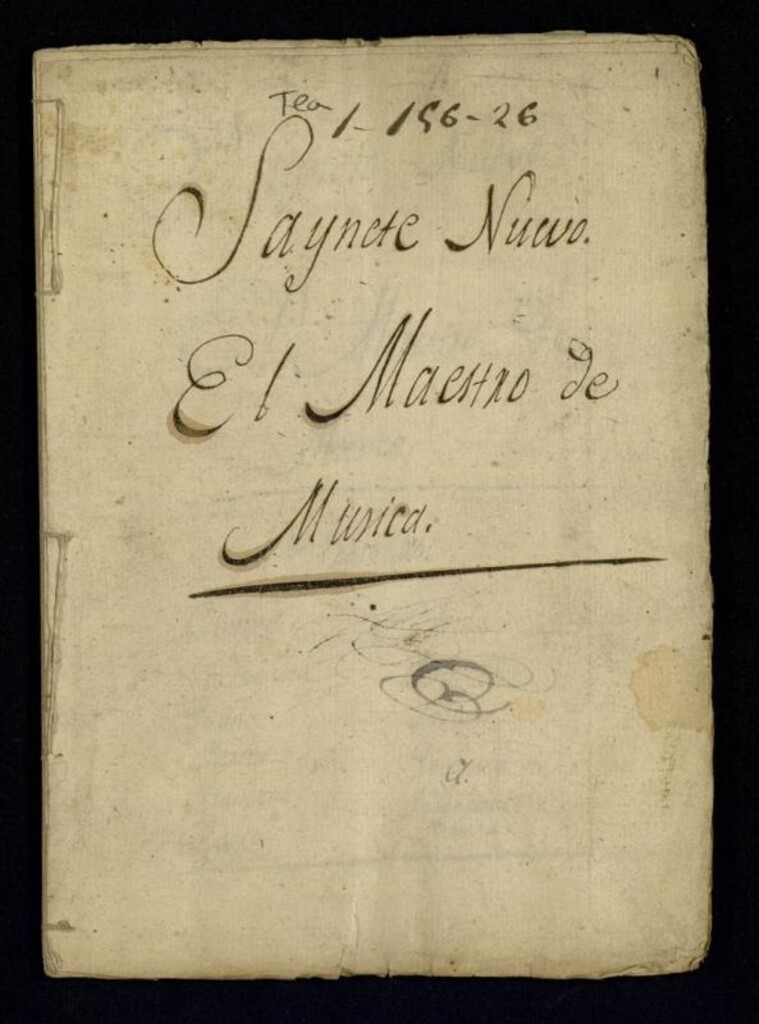 Tea 1-156-26
Saynete Nuevo.
El Maestro de
Musica.
a.